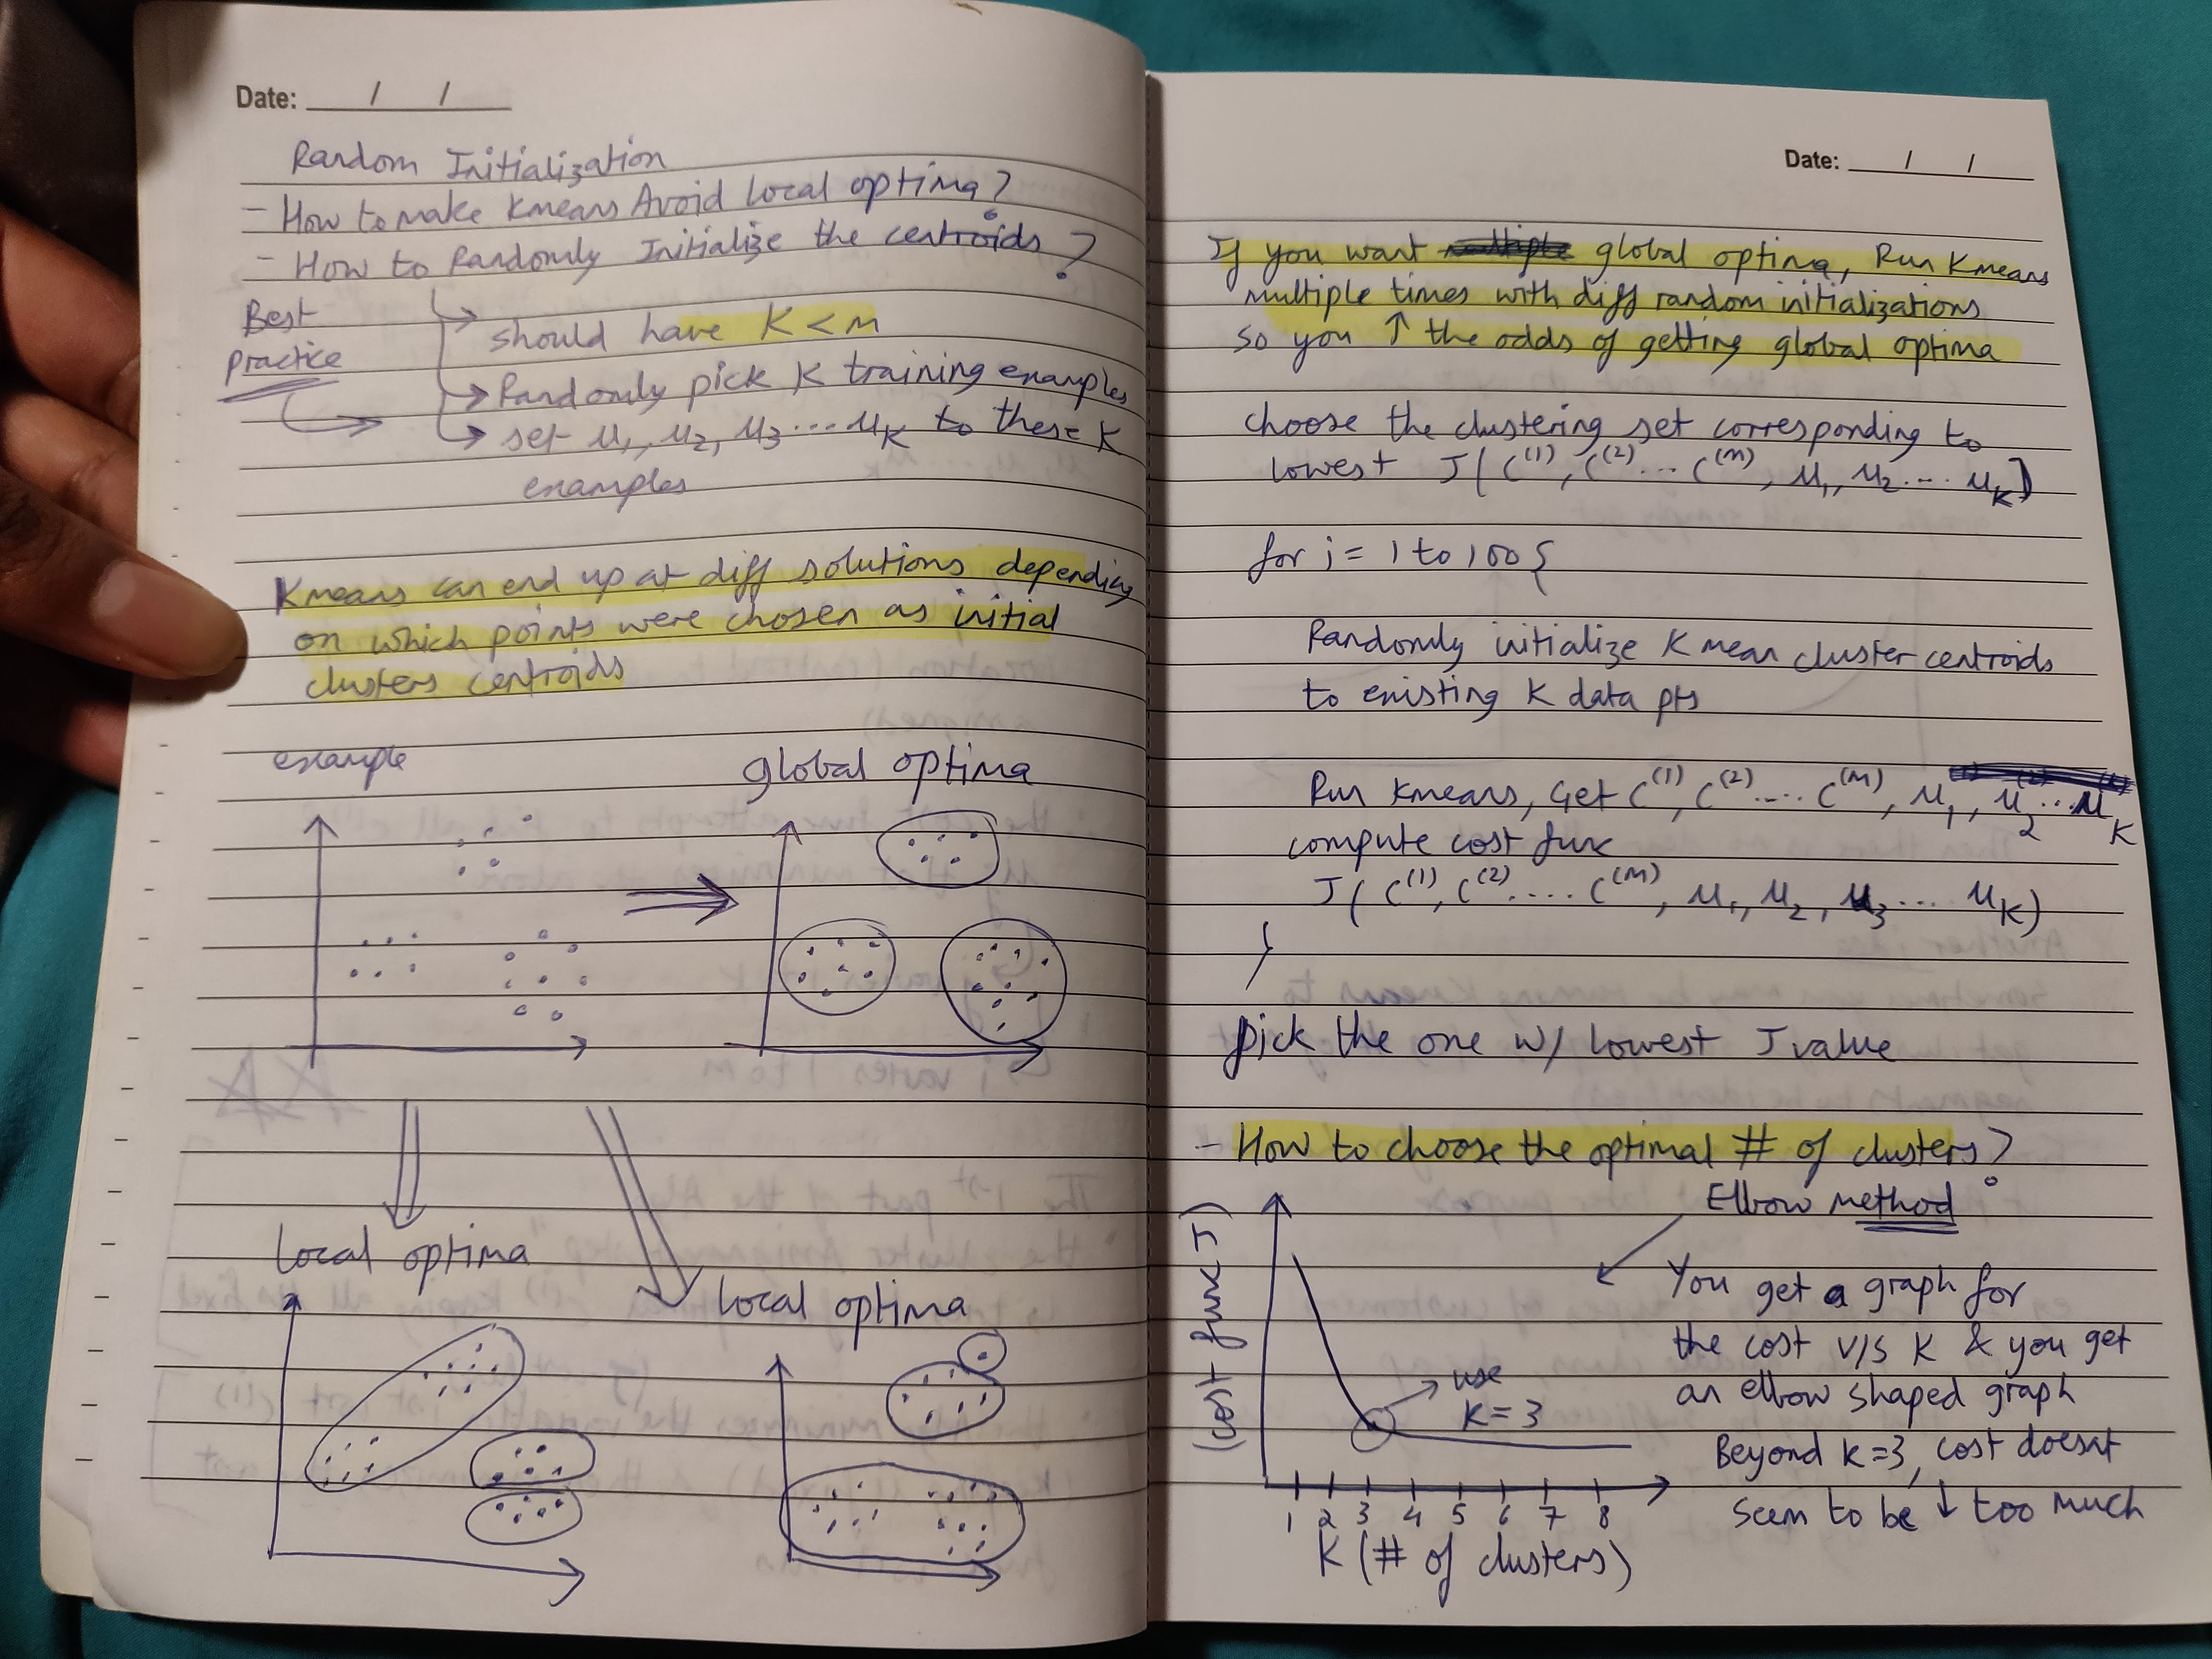 Date: / /
Random Initialization
- How to make Kmeans Avoid local optima?
- How to Randomly Initialize the centroids?
Best
Practice
should have K < m
Randomly pick K training examples
set μ1, μ2, μ3 .... μK to these K
examples
Kmeans can end up at diff solutions depending
on which points were chosen as initial
clusters centroids
example
global optima
local optima
local optima
Date: / /
If you want global optima, Run Kmeans
multiple times with diff random initializations
so you ↑ the odds of getting global optima
choose the clustering set corresponding to
lowest J(C(1), C(2) ... C(m), μ1, μ2 .... μK)
for i = 1 to 100 {
Randomly initialize K mean cluster centroids
to existing K data pts
Run Kmeans, Get C(1), C(2) .... C(m), μ1, μ2 ... μK
compute cost func
J( C(1), C(2) .... C(m), μ1, μ2, μ3 ... μK)
}
pick the one w/ lowest J value
- How to choose the optimal # of clusters?
Elbow method
(cost func J)
You get a graph for
the cost v/s K & you get
an elbow shaped graph
use
K = 3
Beyond K=3, cost doesnt
seem to be ↓ too much
1 2 3 4 5 6 7 8
K (# of clusters)